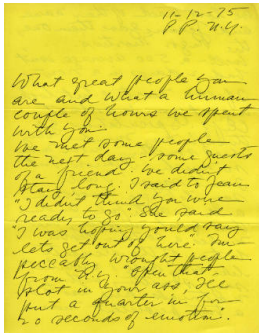 11-12-75
P.P. N.Y.
What great people you
are and what a human
couple of hours we spent
with you.
We met some people
the next day - some guests
of a friend. We didn't
stay long. I said to Jean
"I didn't think you were
ready to go" She said
"I was hoping you'd say
lets get out of here." Im-
peccably wrought people
from N.Y. "Open that
slot in your ass, I'll
put a quarter in for
20 seconds of emotion".